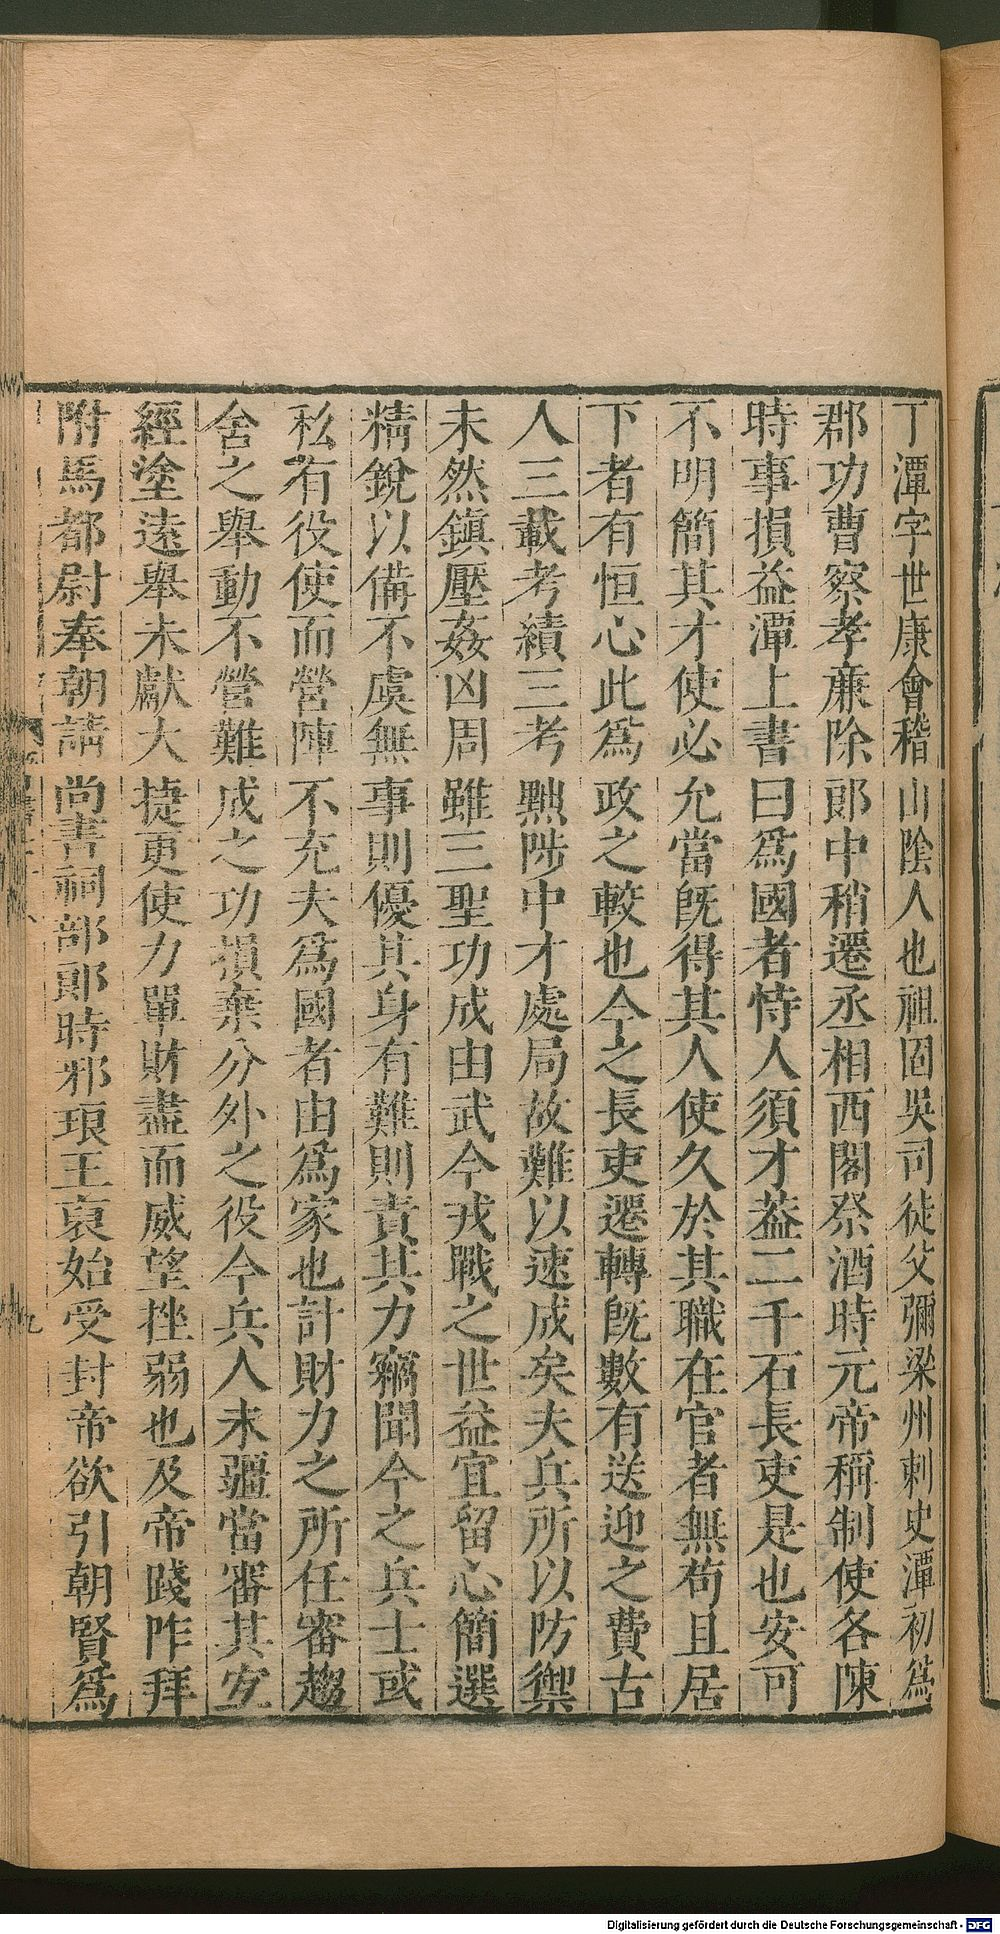 丁潭字世康會稽山陰人也祖固吳司徒父彌梁州刺史潭初爲
郡功曹察孝亷除郞中稍遷丞相西閣祭酒時元帝稱制使各陳
時事損益潭上書曰爲國者恃人須才葢二千石長吏是也安可
不明簡其才使必允當旣得其人使久於其職在官者無苟且居
下者有恒心此爲政之較也今之長吏遷轉旣數有送迎之費古
人三載考績三考黜陟中才處局故難以速成矣夫兵所以防禦
未然鎭壓姦凶周雖三聖功成由武今戎戰之世益宜留心簡選
精銳以備不虞無事則優其身有難則責其力竊聞今之兵士或
私有役使而營陣不充夫爲國者由爲家也計財力之所任審趨
舍之舉動不營難成之功損棄分外之役今兵人未彊當審其宜
經塗遠舉未獻大捷更使力單財盡而威望挫弱也及帝踐阼拜
駙馬都尉奉朝請尚書祠部郎時邪琅王裒始受封帝欲引朝賢爲
九
Digitalisierung gefördert durch die Deutsche Forschungsgemeinschaft - DFG